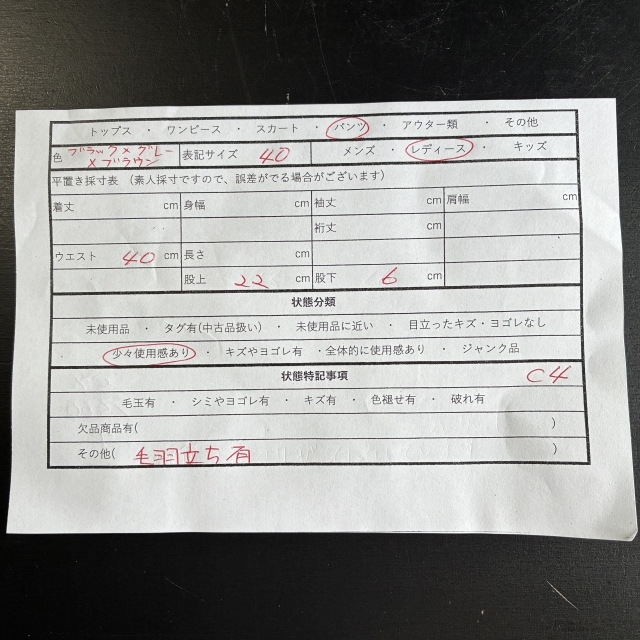 トップス ・ ワンピース ・ スカート ・ パンツ ・ アウター類 ・ その他
色 ブラック×グレー×ブラウン 表記サイズ 40 メンズ ・ レディース ・ キッズ
平置き採寸表 (素人採寸ですので、誤差がでる場合がございます)
着丈 cm 身幅 cm 袖丈 cm 肩幅 cm
裄丈 cm
ウエスト 40 cm 長さ cm
股上 22 cm 股下 6 cm
状態分類
未使用品 ・ タグ有(中古品扱い) ・ 未使用品に近い ・ 目立ったキズ・ヨゴレなし
・ 少々使用感あり ・ キズやヨゴレ有 ・全体的に使用感あり ・ ジャンク品
状態特記事項 C4
毛玉有 ・ シミやヨゴレ有 ・ キズ有 ・ 色褪せ有 ・ 破れ有
欠品商品有( )
その他( 毛羽立ち有 )